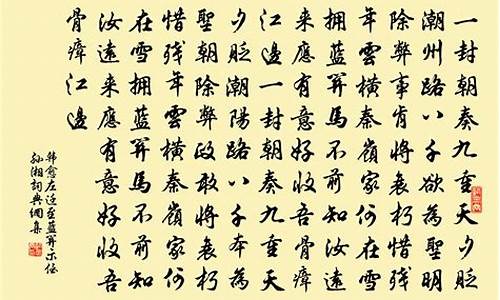 一封朝奏九重天夕貶
潮州路八千欲為聖明
除弊事肯將衰朽惜殘
年雲橫秦嶺家何在雪
擁藍關馬不前知汝遠
來應有意好收吾骨瘴
江邊一封朝奏九重天
夕貶潮陽路八千本為
聖朝除弊政敢將衰朽
惜殘年雲橫秦嶺家何
在雪擁藍關馬不前知
汝遠來應有意好收吾
骨瘴江邊
韓愈左遷至藍關示侄
孫湘詞典網集